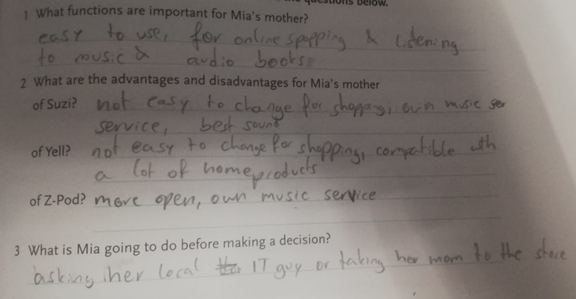 questions below.
1 What functions are important for Mia's mother?
easy to use, for online shpping & Listening
to music & audio books
2 What are the advantages and disadvantages for Mia's mother
of Suzi? not easy to change for shopping, own music ser
service, best sound
of Yell? not easy to change for shopping, compatible with
a lot of home products
of Z-Pod? more open, own music service
3 What is Mia going to do before making a decision?
asking her local IT guy or taking her mom to the store